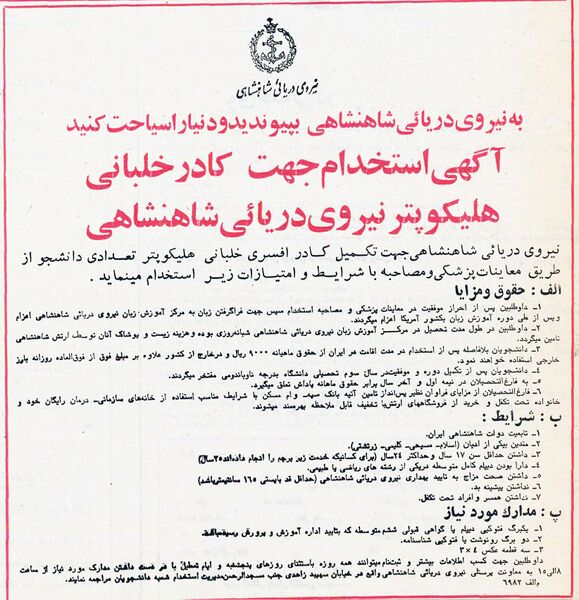 نیروی دریائی شاهنشاهی
به نیروی دریائی شاهنشاهی بپیوندید و دنیا را سیاحت کنید
آگهی استخدام جهت کادر خلبانی
هلیکوپتر نیروی دریائی شاهنشاهی
نیروی دریائی شاهنشاهی جهت تکمیل کادر افسری خلبانی هلیکوپتر تعدادی دانشجو از
طریق معاینات پزشکی و مصاحبه با شرایط و امتیازات زیر استخدام مینماید.
الف: حقوق و مزایا
۱ـ داوطلبین پس از احراز موفقیت در معاینات پزشکی و مصاحبه استخدام سپس جهت فراگرفتن زبان به مرکز آموزش زبان نیروی دریائی شاهنشاهی اعزام
و پس از طی دوره آموزش زبان بکشور آمریکا اعزام میگردند.
۲ـ داوطلبین در طول مدت تحصیل در مرکز آموزش زبان نیروی دریائی شاهنشاهی شبانه‌روزی بوده و هزینه زیست و پوشاک آنان توسط ارتش شاهنشاهی
تامین میگردد.
۳ـ دانشجویان بلافاصله پس از استخدام در مدت اقامت در ایران از حقوق ماهیانه ۹۰۰۰ ریال و در خارج از کشور علاوه بر مبلغ فوق از فوق‌العاده روزانه بارز
خارجی استفاده خواهند نمود.
۴ـ دانشجویان پس از تکمیل دوره و موفقیت در سال سوم تحصیلی دانشگاه بدرجه ناوبان‌دومی مفتخر میگردند.
۵ـ به فارغ‌التحصیلان در نیمه اول و آخر سال برابر حقوق ماهانه پاداش تعلق میگیرد.
۶ـ فارغ‌التحصیلان از مزایای فراوان نظیر پس‌انداز تامین آتیه بانک سپه ـ وام مسکن با شرایط مناسب استفاده از خانه‌های سازمانی ـ درمان رایگان خود و
خانواده تحت تکفل و خرید از فروشگاههای ارتش با تخفیف قابل ملاحظه بهره‌مند میشوند.
ب: شرایط:
۱ـ تابعیت دولت شاهنشاهی ایران.
۲ـ متدین بیکی از ادیان (اسلام ـ مسیحی ـ کلیمی ـ زرتشتی).
۳ـ نداشتن سن ۱۷ سال و حداکثر ۲۴ سال (برای کسانیکه خدمت زیر پرچم را انجام داده‌اند ۲۵ سال)
۴ـ دارا بودن دیپلم کامل متوسطه در یکی از رشته های ریاضی یا طبیعی.
۵ـ داشتن صحت مزاج به تایید بهداری نیروی دریائی شاهنشاهی (حداقل قد بایستی ۱۶۵ سانتیمتر باشد)
۶ـ نداشتن پیشینه بد.
۷ـ نداشتن همسر و افراد تحت تکفل.
پ: مدارک مورد نیاز
۱ـ یکبرگ فتوکپی دیپلم یا گواهی قبولی ششم متوسطه که بتایید اداره آموزش و پرورش رسیده باشد.
۲ـ دو برگ رونوشت یا فتوکپی شناسنامه.
۳ـ سه قطعه عکس ۴ × ۳
داوطلبین جهت کسب اطلاعات بیشتر و ثبت‌نام میتوانند همه روزه باستثنای روزهای پنجشنبه و ایام تعطیل با در دست داشتن مدارک مورد نیاز از ساعت
۸ الی ۱۵ به معاونت پرسنلی نیروی دریائی شاهنشاهی واقع در خیابان سپهبد زاهدی جنب مدیریت استخدام شعبه دانشجویان مراجعه نمایند.
م الف ۶۹۸۲